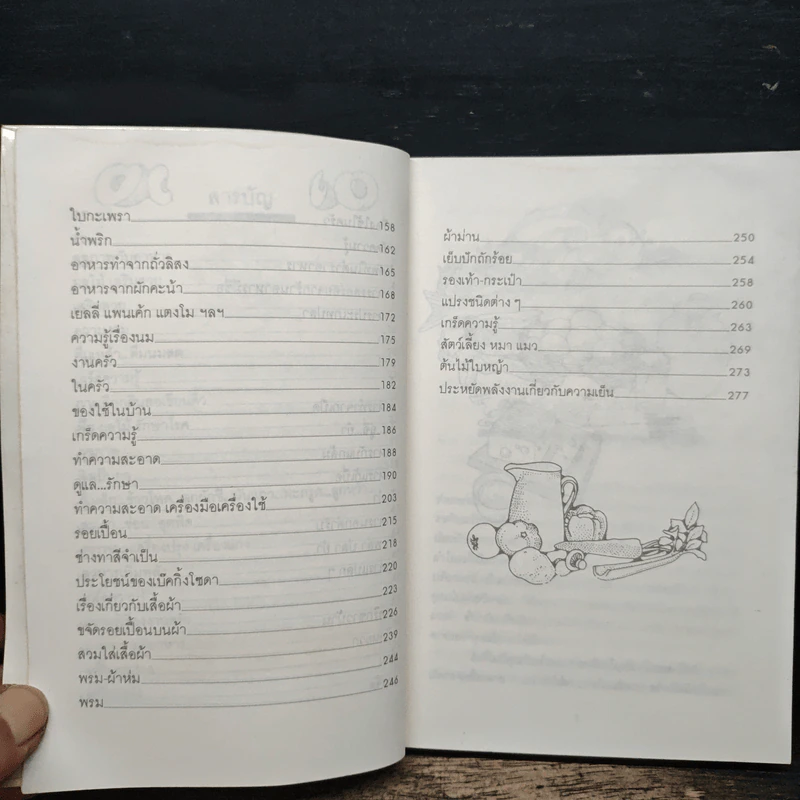 ใบกะเพรา 158
น้ำพริก 162
อาหารทำจากถั่วลิสง 165
อาหารจากผักคะน้า 168
เยลลี่ แพนเค้ก แตงโม ฯลฯ 172
ความรู้เรื่องนม 175
งานครัว 179
ในครัว 182
ของใช้ในบ้าน 184
เกร็ดความรู้ 186
ทำความสะอาด 188
ดูแล...รักษา 190
ทำความสะอาด เครื่องมือเครื่องใช้ 203
รอยเปื้อน 215
ช่างทาสีจำเป็น 218
ประโยชน์ของเบ๊คกิ้งโซดา 220
เรื่องเกี่ยวกับเสื้อผ้า 223
ขจัดรอยเปื้อนบนผ้า 226
สวมใส่เสื้อผ้า 239
พรม-ผ้าห่ม 244
พรม 246
ผ้าม่าน 250
เย็บปักถักร้อย 254
รองเท้า-กระเป๋า 258
แปรงชนิดต่าง ๆ 260
เกร็ดความรู้ 263
สัตว์เลี้ยง หมา แมว 269
ต้นไม้ใบหญ้า 273
ประหยัดพลังงานเกี่ยวกับความเย็น 277